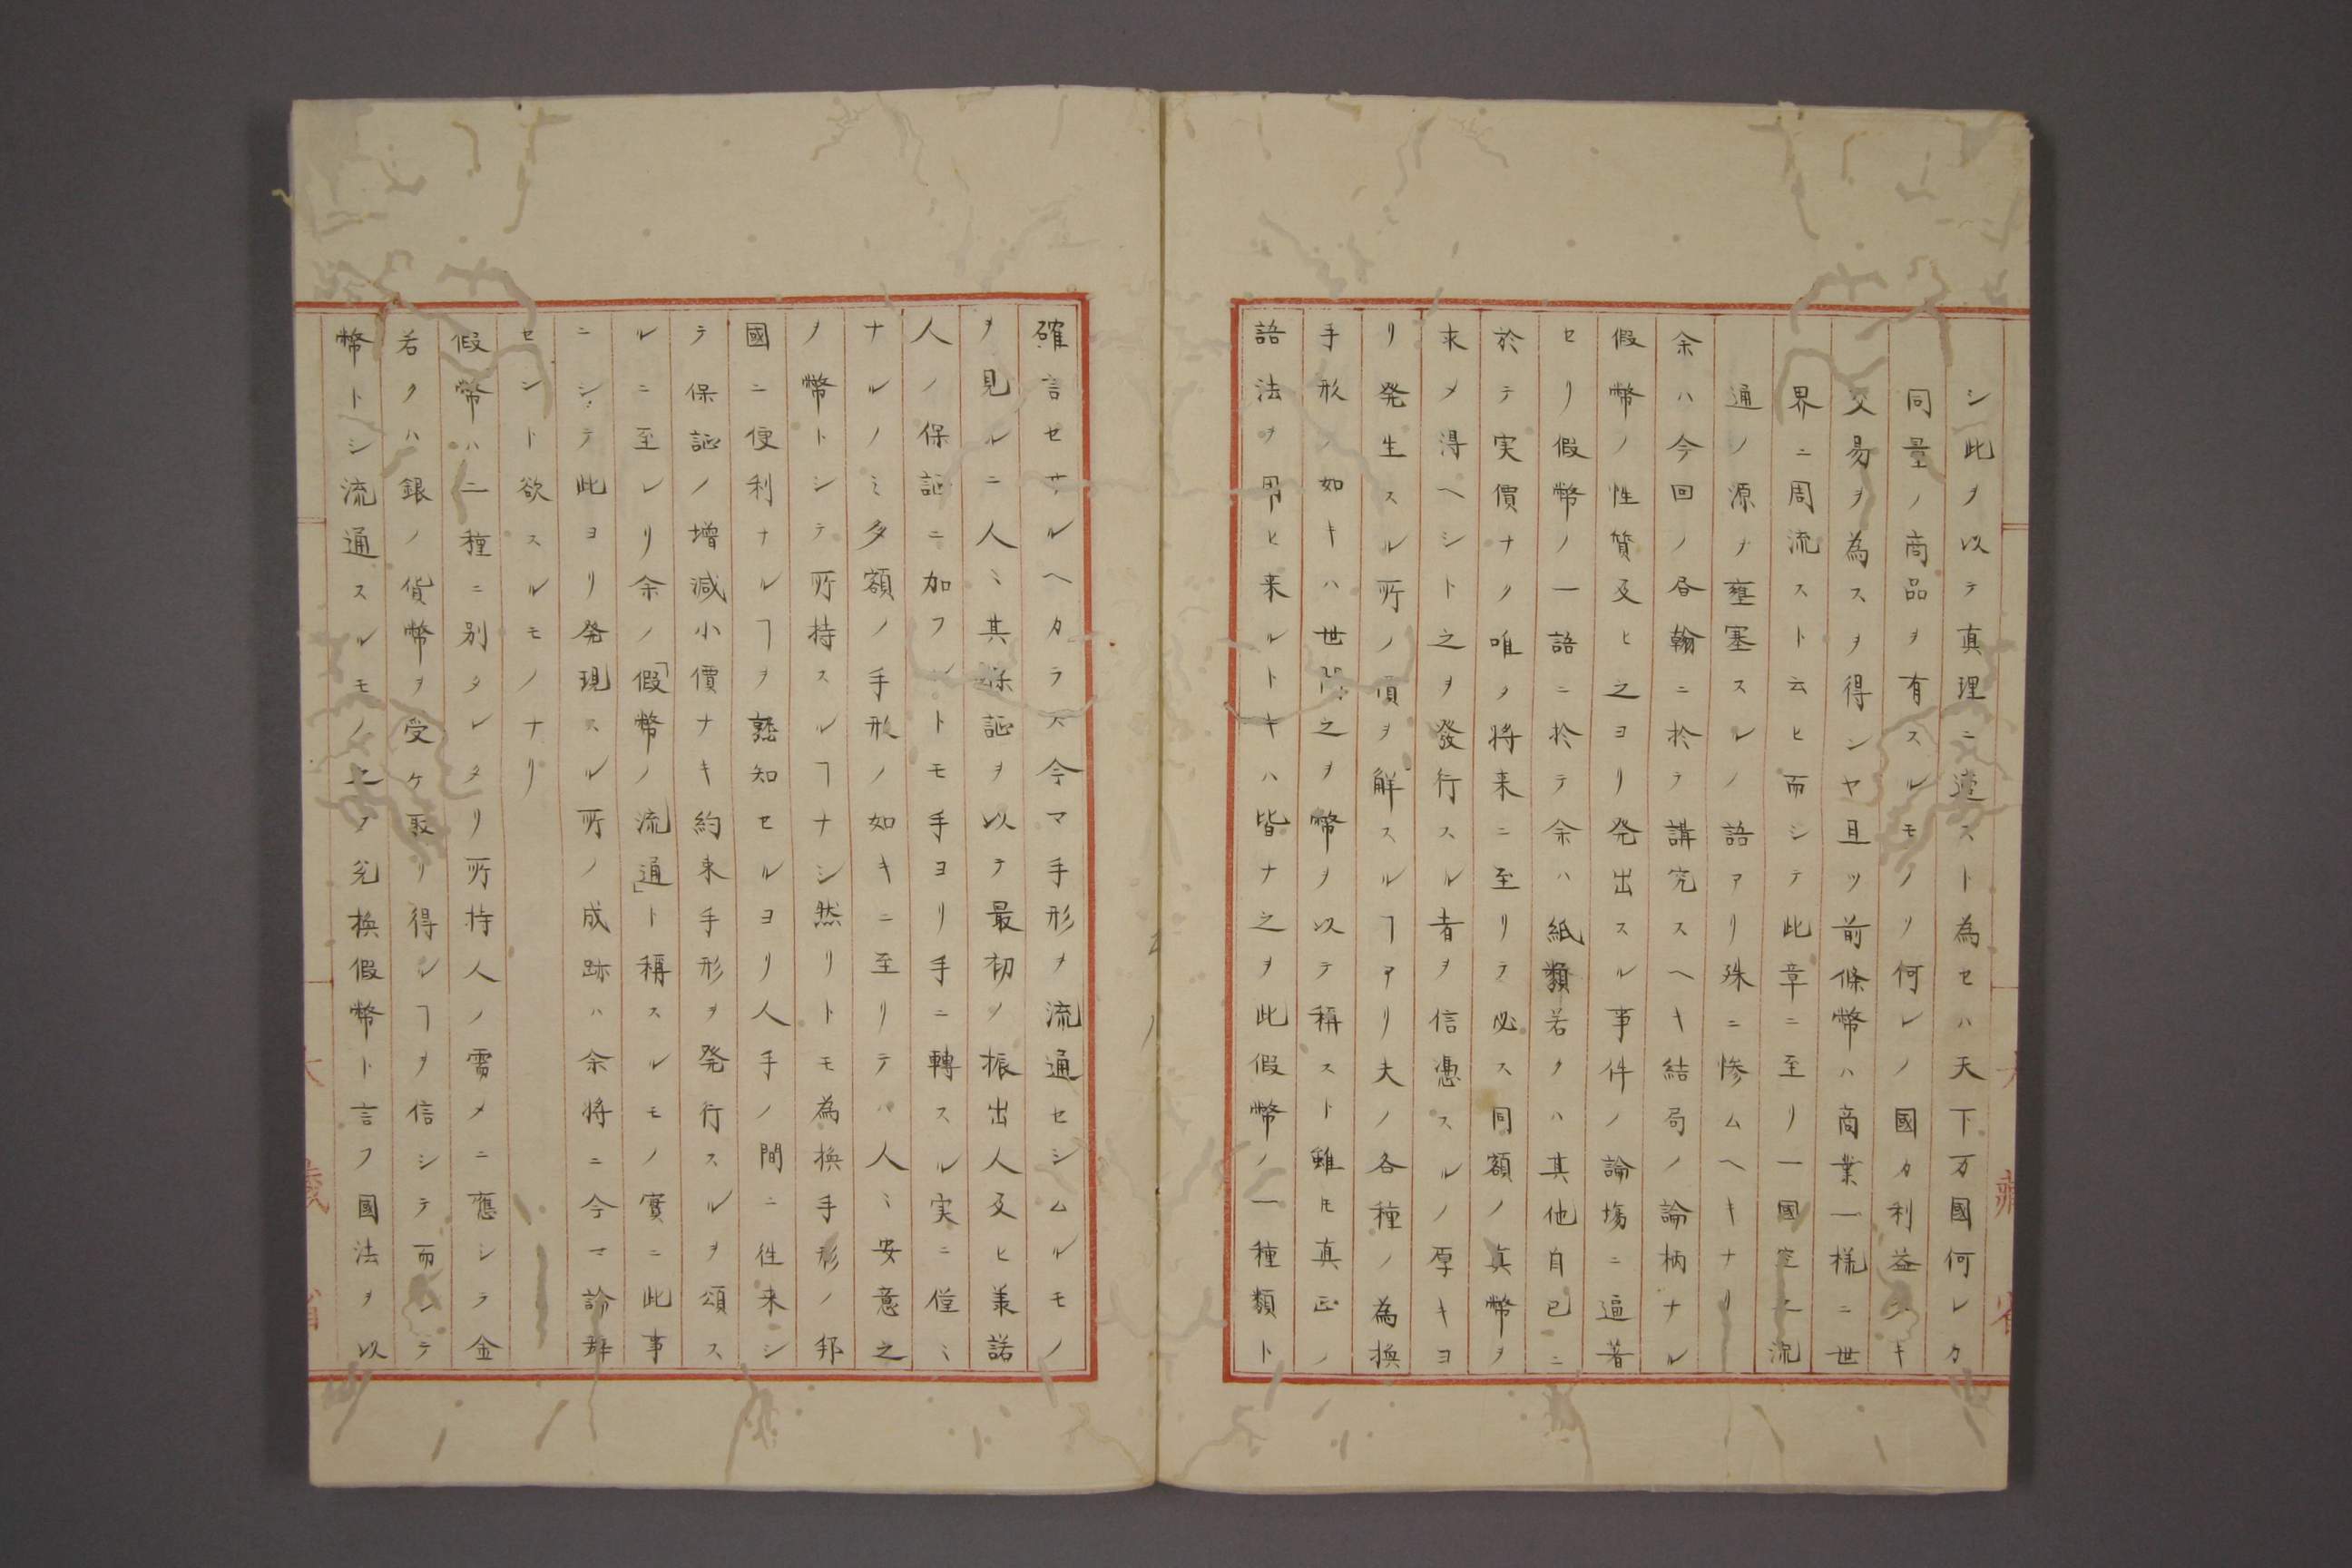 シ此ヲ以テ真理ニ違スト為セハ天下万國何レカ
同量ノ商品ヲ有スルモノノ何レノ國カ利益ニキ
交易ヲ為スヲ得ンヤ且ツ前條幣ハ商業一様ニ世
界ニ周流スト云ヒ而シテ此章ニ至リ一國空ニ流
通ノ源ヲ壅塞スルノ語アリ殊ニ惨ムヘキナリ
余ハ今回ノ呑翰ニ於テ講究スヘキ結局ノ論柄ナル
假幣ノ性質及ヒ之ヨリ発出スル事件ノ論塲ニ逼著
セリ假幣ノ一語ニ於テ余ハ紙類若クハ其他自己ニ
於テ実價ナク唯タ将来ニ至リテ必ス同額ノ真幣ヲ
求メ得ヘシト之ヲ發行スル者ヲ信憑スルノ厚キヨ
リ発生スル所ノ價ヲ解スルヿアリ夫ノ各種ノ為換
手形ノ如キハ世間之ヲ幣ヲ以テ稱スト雖𪜈真正ノ
語法ヲ用ヒ来ルトキハ皆ナ之ヲ此假幣ノ一種類ト
確言セサルヘカラス今マ手形ヲ流通セシムルモノ
ヲ見ルニ人ミ其保証ヲ以テ最初ノ振出人及ヒ兼諾
人ノ保証ニ加フト モ手ヨリ手ニ轉スル実ニ僅ミ
ナルノミ多額ノ手形ノ如キニ至リテハ人ミ安意之
ノ幣トシテ所持スルヿナシ然リトモ為換手形ノ邦
國ニ便利ナルヿヲ熟知セルヨリ人手ノ間ニ徃来シ
テ保証ノ増減小價ナキ約束手形ヲ発行スルヲ頌ス
ルニ至レリ余ノ「假幣ノ流通」ト稱スルモノ實ニ此事
ニシテ此ヨリ発現スル所ノ成跡ハ余将ニ今マ論辞
セント欲スルモノナリ
假幣ハ二種ニ別タレタリ所持人ノ需メニ應シテ金
若クハ銀ノ貨幣ヲ受ケ取リ得ルヿヲ信シテ而シテ
幣トシ流通スルモノ之ヲ兌換假幣ト言フ國法ヲ以